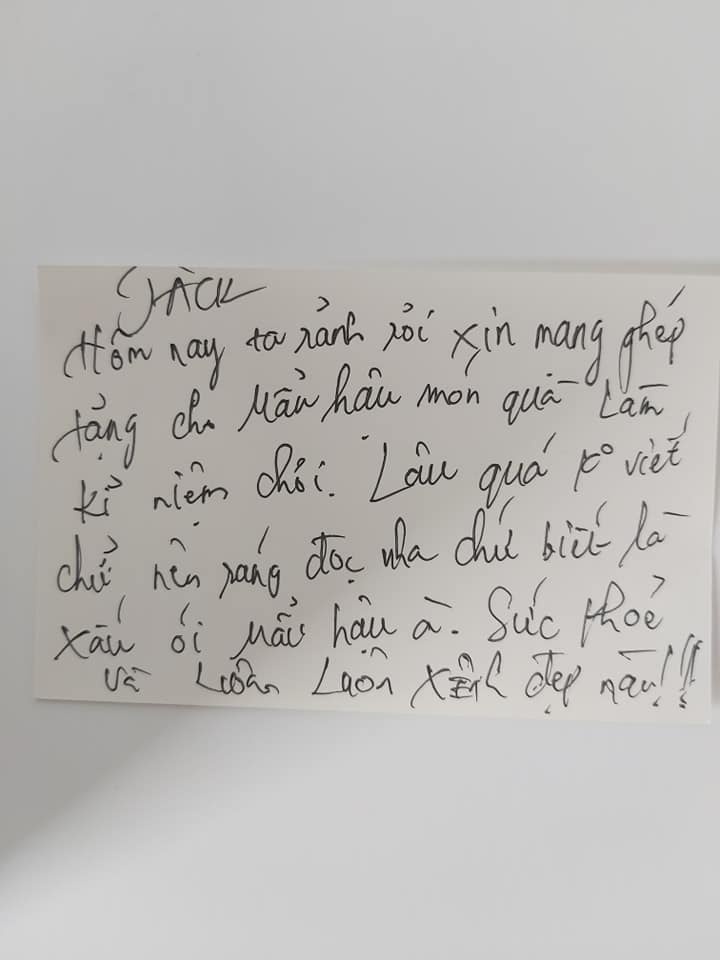 JÀCK
Hôm nay ta rảnh rỏi xin mang ghép
tặng cho Mẫu hậu món quà làm
kỉ niệm chơi. Lâu quá k° viết
chử nên ráng đọc nha chứ biết là
xấu ói mẫu hậu à. Sức khoẻ
và luôn luôn xinh đẹp nàu!!!